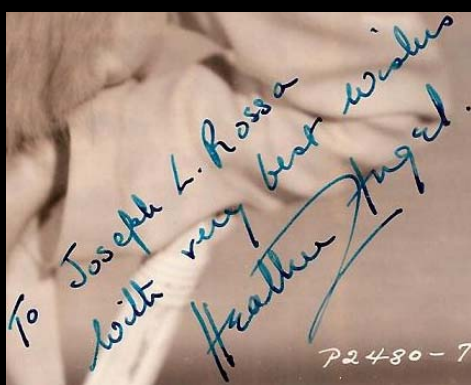 To Joseph L. Rossa
with very best wishes
Heather Angel.
P2480-7